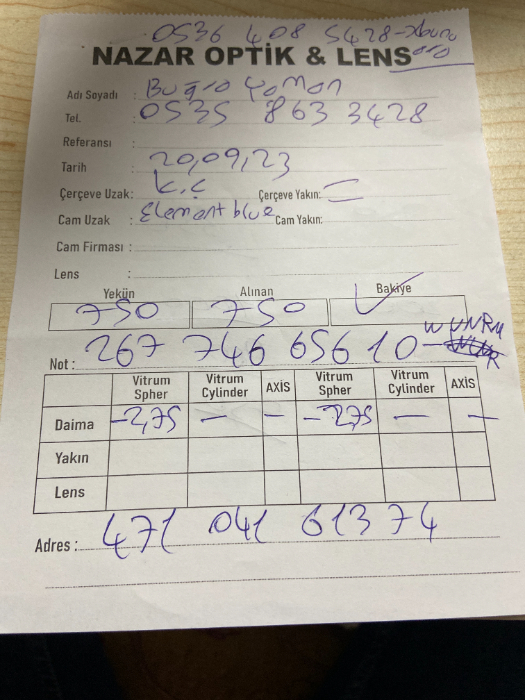 0536 408 5428-
NAZAR OPTİK & LENS
Adı Soyadı : Buğra Yaman
Tel. : 0535 863 3428
Referansı :
Tarih : 20,09,23
Çerçeve Uzak: K.Ç Çerçeve Yakın: —
Cam Uzak : Element blue Cam Yakın:
Cam Firması :
Lens :
Yekün Alınan Bakiye
750 750 ✓
Not : 267 746 656 10 -
Vitrum Spher Vitrum Cylinder AXİS Vitrum Spher Vitrum Cylinder AXİS
Daima -2,75 — — -2,75 — —
Yakın
Lens
Adres : 471 041 613 74